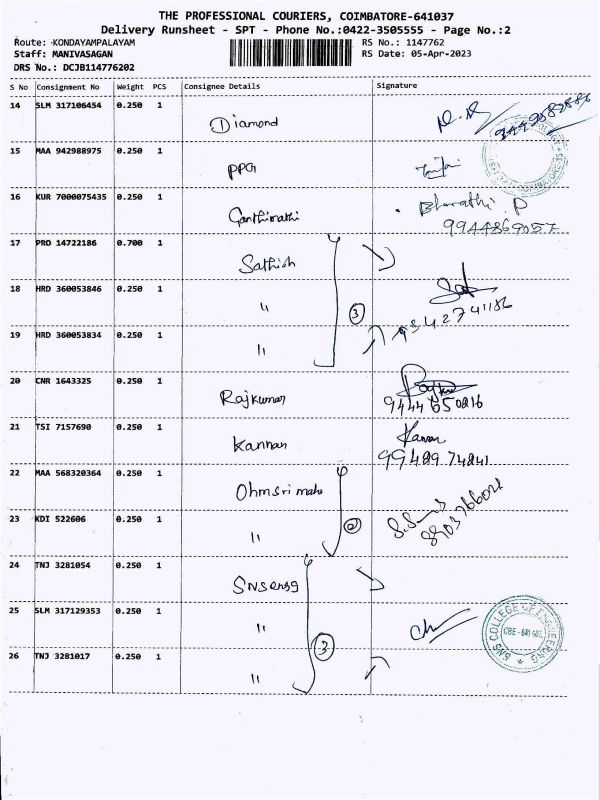 THE PROFESSIONAL COURIERS, COIMBATORE-641037
Delivery Runsheet - SPT - Phone No.:0422-3505555 - Page No.:2
Route: KONDAYAMPALAYAM RS No.: 1147762
Staff: MANIVASAGAN RS Date: 05-Apr-2023
DRS No.: DCJB114776202
S No Consignment No Weight PCS Consignee Details Signature
14 SLM 317106454 0.250 1 Diamond
15 MAA 942988975 0.250 1 PPG
16 KUR 7000075435 0.250 1 Ganthimathi Bharathi. P
9944869057
17 PRO 14722186 0.700 1 Sathish
18 HRD 360053846 0.250 1 " 3
9342741186
19 HRD 360053834 0.250 1 "
20 CNR 1643325 0.250 1 Rajkumar
9444650816
21 TSI 7157690 0.250 1 Kannan Kannan
9948974841
22 MAA 568320364 0.250 1 Ohmsri mahe
23 KDI 522606 0.250 1 " 2
24 TNJ 3281054 0.250 1
25 SLM 317129353 0.250 1 " 3
SNS COLLEGE OF ENGINEERING
26 TNJ 3281017 0.250 1 "